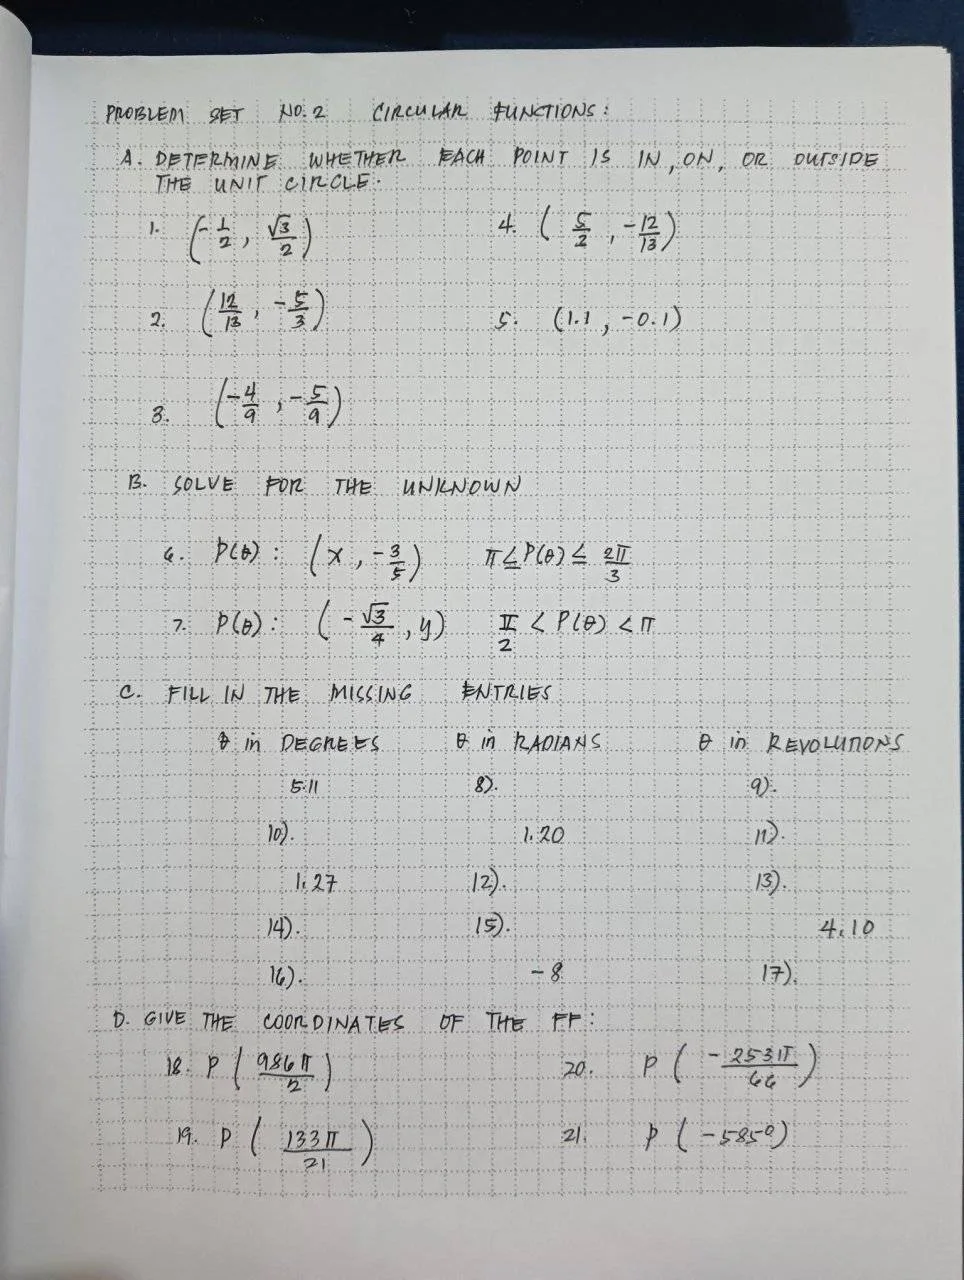 PROBLEM SET NO. 2 CIRCULAR FUNCTIONS:
A. DETERMINE WHETHER EACH POINT IS IN, ON, OR OUTSIDE
THE UNIT CIRCLE.
1. (-1/2, √3/2) 4. (5/2, -12/13)
2. (12/13, -5/3) 5. (1.1, -0.1)
3. (-4/9, -5/9)
B. SOLVE FOR THE UNKNOWN
6. P(θ): (x, -3/5) π ≤ P(θ) ≤ 2π/3
7. P(θ): (-√3/4, y) π/2 < P(θ) < π
C. FILL IN THE MISSING ENTRIES
θ in DEGREES θ in RADIANS θ in REVOLUTIONS
5.11 8). 9).
10). 1.20 11).
1.27 12). 13).
14). 15). 4.10
16). -8 17).
D. GIVE THE COORDINATES OF THE FF:
18. P(986π/2) 20. P(-253π/66)
19. P(133π/21) 21. P(-585°)